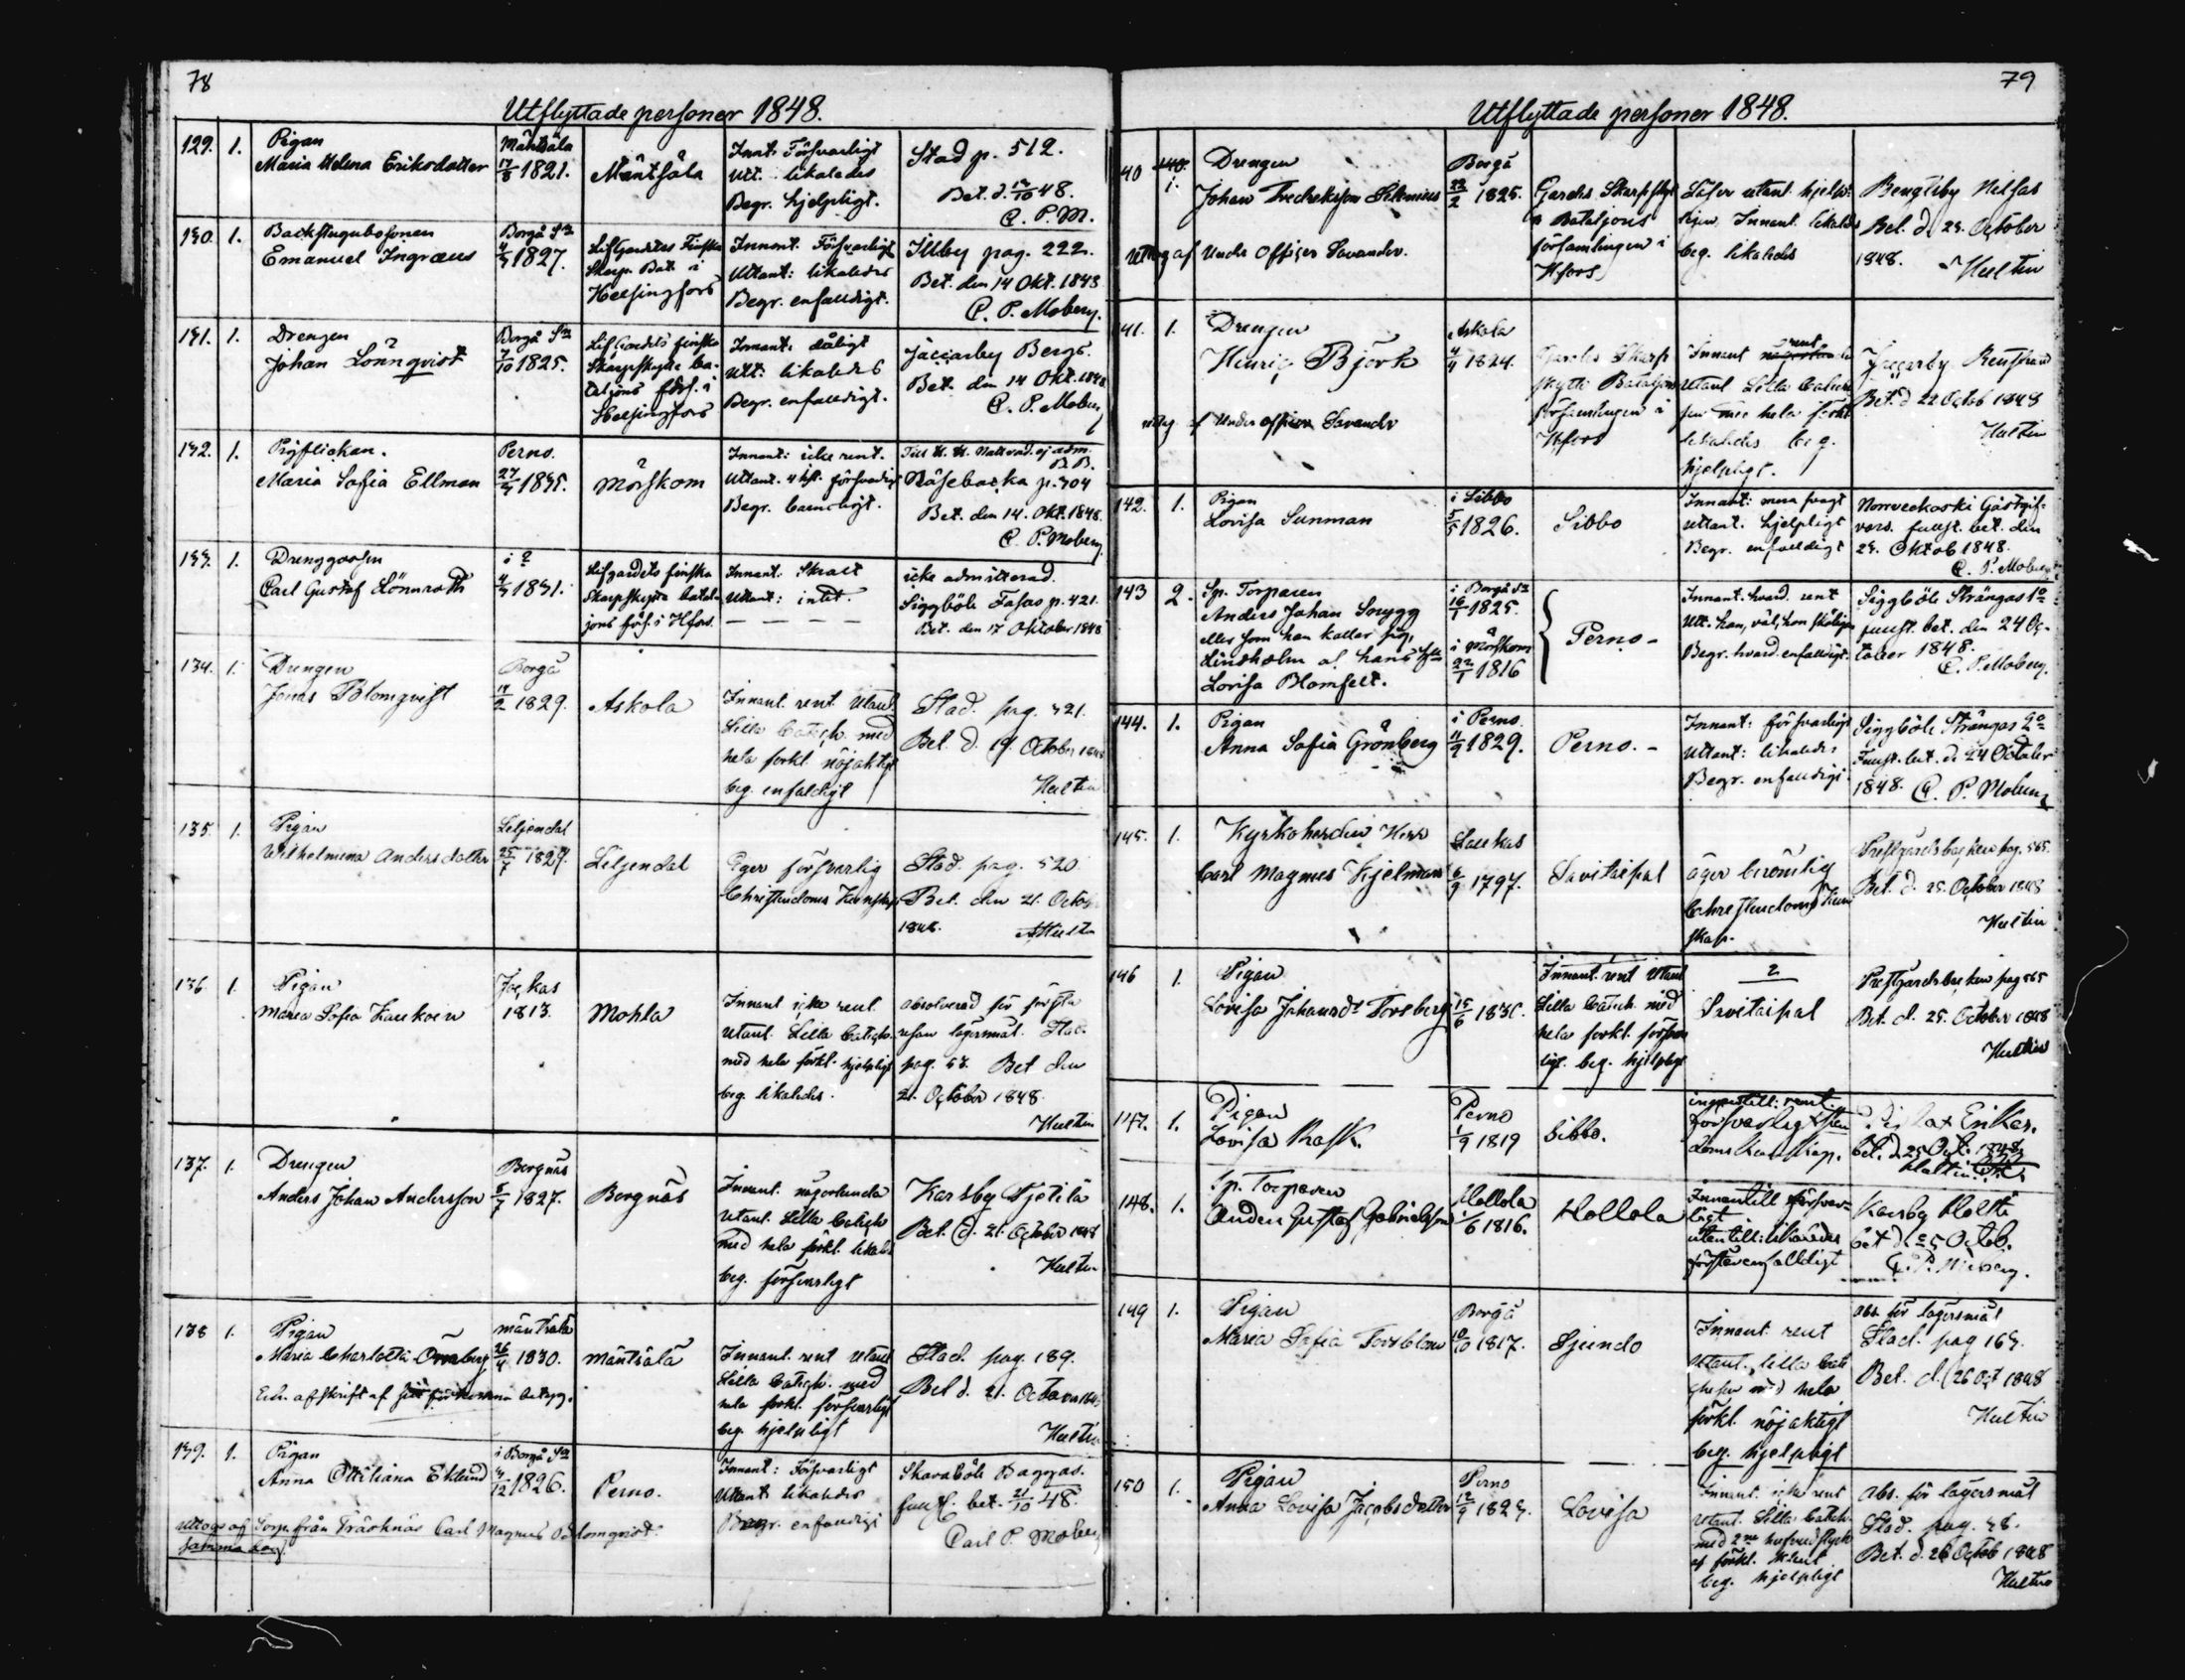 78
Utflyttade personer 1848.
129. 1. Pigan
Maria Helena Eriksdotter
Mäntsälä
17/8 1821.
Mäntsälä
Innt. Försvarligt
Utt. likaledes
Begr. hjelpligt.
Stad p. 512.
Bet. d. 48.
C. P. M.
130. 1. Backstugubosonen
Emanuel Ingræus
Borgå Sn
1827.
LifGardets Finska
Skarp. Bat. i
Helsingfors
Innant. Försvarligt
Utant: likaledes
Begr. enfaldigt.
Illby pag. 222.
Bet. den 14 Okt. 1848
C. P. Moberg.
131. 1. Drengen
Johan Lönnqvist
Borgå Sn
1825.
Lif Gardets finska
Skarpskytte ba-
taljons förs. i
Helsingfors
Innant. dåligt
Utt: likaledes
Begr. enfaldigt.
Jaccarby Bergs.
Bet. den 14 Okt. 1848
C. P. Moberg
132. 1. Pigflickan.
Maria Sofia Ellman
Perno.
1835.
Mörskom
Innant: icke rent.
Utant. 4 hft. försvarligt
Begr. barnsligt.
Till H. H. Nattvard ej adm.
Näsebacka p. 304
Bet. den 14. Okt. 1848.
C. P. Moberg.
133. 1. Drenggossen
Carl Gustaf Lönnroth
i ?
1831.
Lifgardets finska
Skarpskytte batal-
jons förs. i Hfors.
Innant. Skralt
Utant: intet.
icke admitterad.
Siggböle Tasas p. 421.
Bet. den 17 Oktober 1848
134. 1. Drengen
Jonas Blomqvist
Borgå
1829.
Askola
Innant. rent Utant.
Lilla Catech. med
hela förkl. nöjaktigt
beg. enfaldigt
Stad. pag. 321.
Bet. d. 19. October 1848
Hultin
135. 1. Pigan
Wilhelmina Andersdotter
Liljendal
25/7 1829.
Liljendal
Eger försvarlig
Christendoms Kunskap
Stad. pag. 520.
Bet. den 21. Octob
1848. Hultin
136. 1. Pigan
Maria Sofia Kaukoin
Jockas
1813.
Mohla
Innant icke rent
utant. Lilla Catech.
med hela förkl. hjelpligt
beg. likaledes.
absolverad för första
resan lägersmål. Stad.
pag. 53. Bet den
21. October 1848.
Hultin
137. 1. Drengen
Anders Johan Andersson
Borgnäs
1827.
Borgnäs
Innant. någorlunda
utant. Lilla Catech.
med hela förkl. likaled.
beg. försvarligt
Karsby Sjetilä
Bet. d. 21. October 1848
Hultin
138 1. Pigan
Maria Charlotta Örnberg
Mäntsälä
26/4 1830.
Mäntsälä
Innant. rent utant
Lilla Catech. med
hela förkl. försvarligt
beg. hjelpligt
Stad. pag. 189.
Bet d. 21. October 1848
Hultin
139. 1. Pigan
Anna Ottiliana Eklund
i Borgå Sn
1826.
Perno.
Innant: Försvarligt
Utant likaledes
Begr. enfaldigt
Skavaböle Baggas.
bet. 21/10 48.
Carl P. Moberg
Uttogs af Torp. från Träsknäs Carl Magnus Blomqvist.
samma dag.
79
Utflyttade personer 1848.
40 140. 1. Drengen
Johan Fredriksson Selenius
Borgå
22/2 1825.
Gardes Skarpskyt
Bataljons
församlingen i
Hfors
Läser utant. hjelp-
ligen, Innant. likaledes
beg. likaledes
Bengtsby Nissas
Bet. d. 23. October
1848. Hultin
Uttog af Under Officer Savander.
141. 1. Drengen
Henric Björk
Askola
4/4 1824.
Gardes Skarp
skytte Bataljons
församlingen i
Hfors
Innant rent
utant Lilla Cateche
sen med hela förkl.
likaledes beg.
hjelpligt.
Jaccarby
Bet. d 22 Octob 1848
Hultin
uttog af Under officer Savander
142. 1. Pigan
Lovisa Sunman
i Sibbo
5/5 1826.
Sibbo
Innant: mera svagt
utant. hjelpligt
Begr. enfaldigt
Norrveckoski Gästgif-
vars. bet. den
23. Oktob 1848.
C. P. Moberg
143 2. Sp. Torparen
Anders Johan Snygg
eller som han kallar sig,
Lindholm o. hans hu
Lovisa Blomfelt.
i Borgå Sn
1825.
i Mörskom
22/1 1816
Perno-
Innant. hvard. rent
Utt. han, väl, hon skäligen
Begr. hvard. enfaldigt.
Siggböle Strångas 1o
bet. den 24 Oc-
tober 1848.
C. P. Moberg.
144. 1. Pigan
Anna Sofia Grönberg
i Perno.
11/9 1829.
Perno.-
Innant: försvarligt
Utant: likaledes
Begr. enfaldigt.
Siggböle Strångas 2o
bet. d. 24 October
1848. C. P. Moberg
145. 1. Kyrkoherden Herr
Carl Magnus Kjelman
Laukas
6/9 1797.
Savitaipal
äger berömlig
Christendoms Kun
skap.
Prestgårdsbacken pag. 565.
Bet. d. 25. October 1848
Hultin
146 1. Pigan
Lovisa Johansdr Forsberg
15/6
Innant. rent Utant
Lilla Catech. med
hela förkl. försvar
ligt. beg. hjelpligt
Savitaipal
Prestgårdsbacken pag 565
Bet. d. 25. October 1848
Hultin
147. 1. Pigan
Lovisa Rask.
Perno
1/9 1819
Sibbo.
försvarlig
doms kunskap.
Erikas.
bet. d. 25 Oct. 1848
Hultin
148. 1. Sp. Torparen
Anders Gustaf Gabrielsson
Hollola
1/6 1816.
Hollola
Innantill försvar-
ligt
utantill: likaledes
förstår enfalldigt
Karsby Holtti
bet d. 25 Octob.
C. P. Moberg.
149 1. Pigan
Maria Sofia Forsblom
Borgå
10/10 1817.
Sjundo
Innant. rent
Utant. lilla Cate
chesen med hela
förkl. nöjaktigt
beg. hjelpligt
abs. för lägersmål
Stad. pag 163.
Bet. d. 26 Oct 1848
Hultin
150 1. Pigan
Anna Lovisa Jacobsdotter
Perno
12/9 1823.
Lovisa
Innant. icke rent
utant. Lilla Catech.
med 2ne hufvudstyck
af förkl. klent
beg. hjelpligt
abs. för lägersmål
Stad. pag. 38.
Bet. d. 26 Octob 1848
Hultin